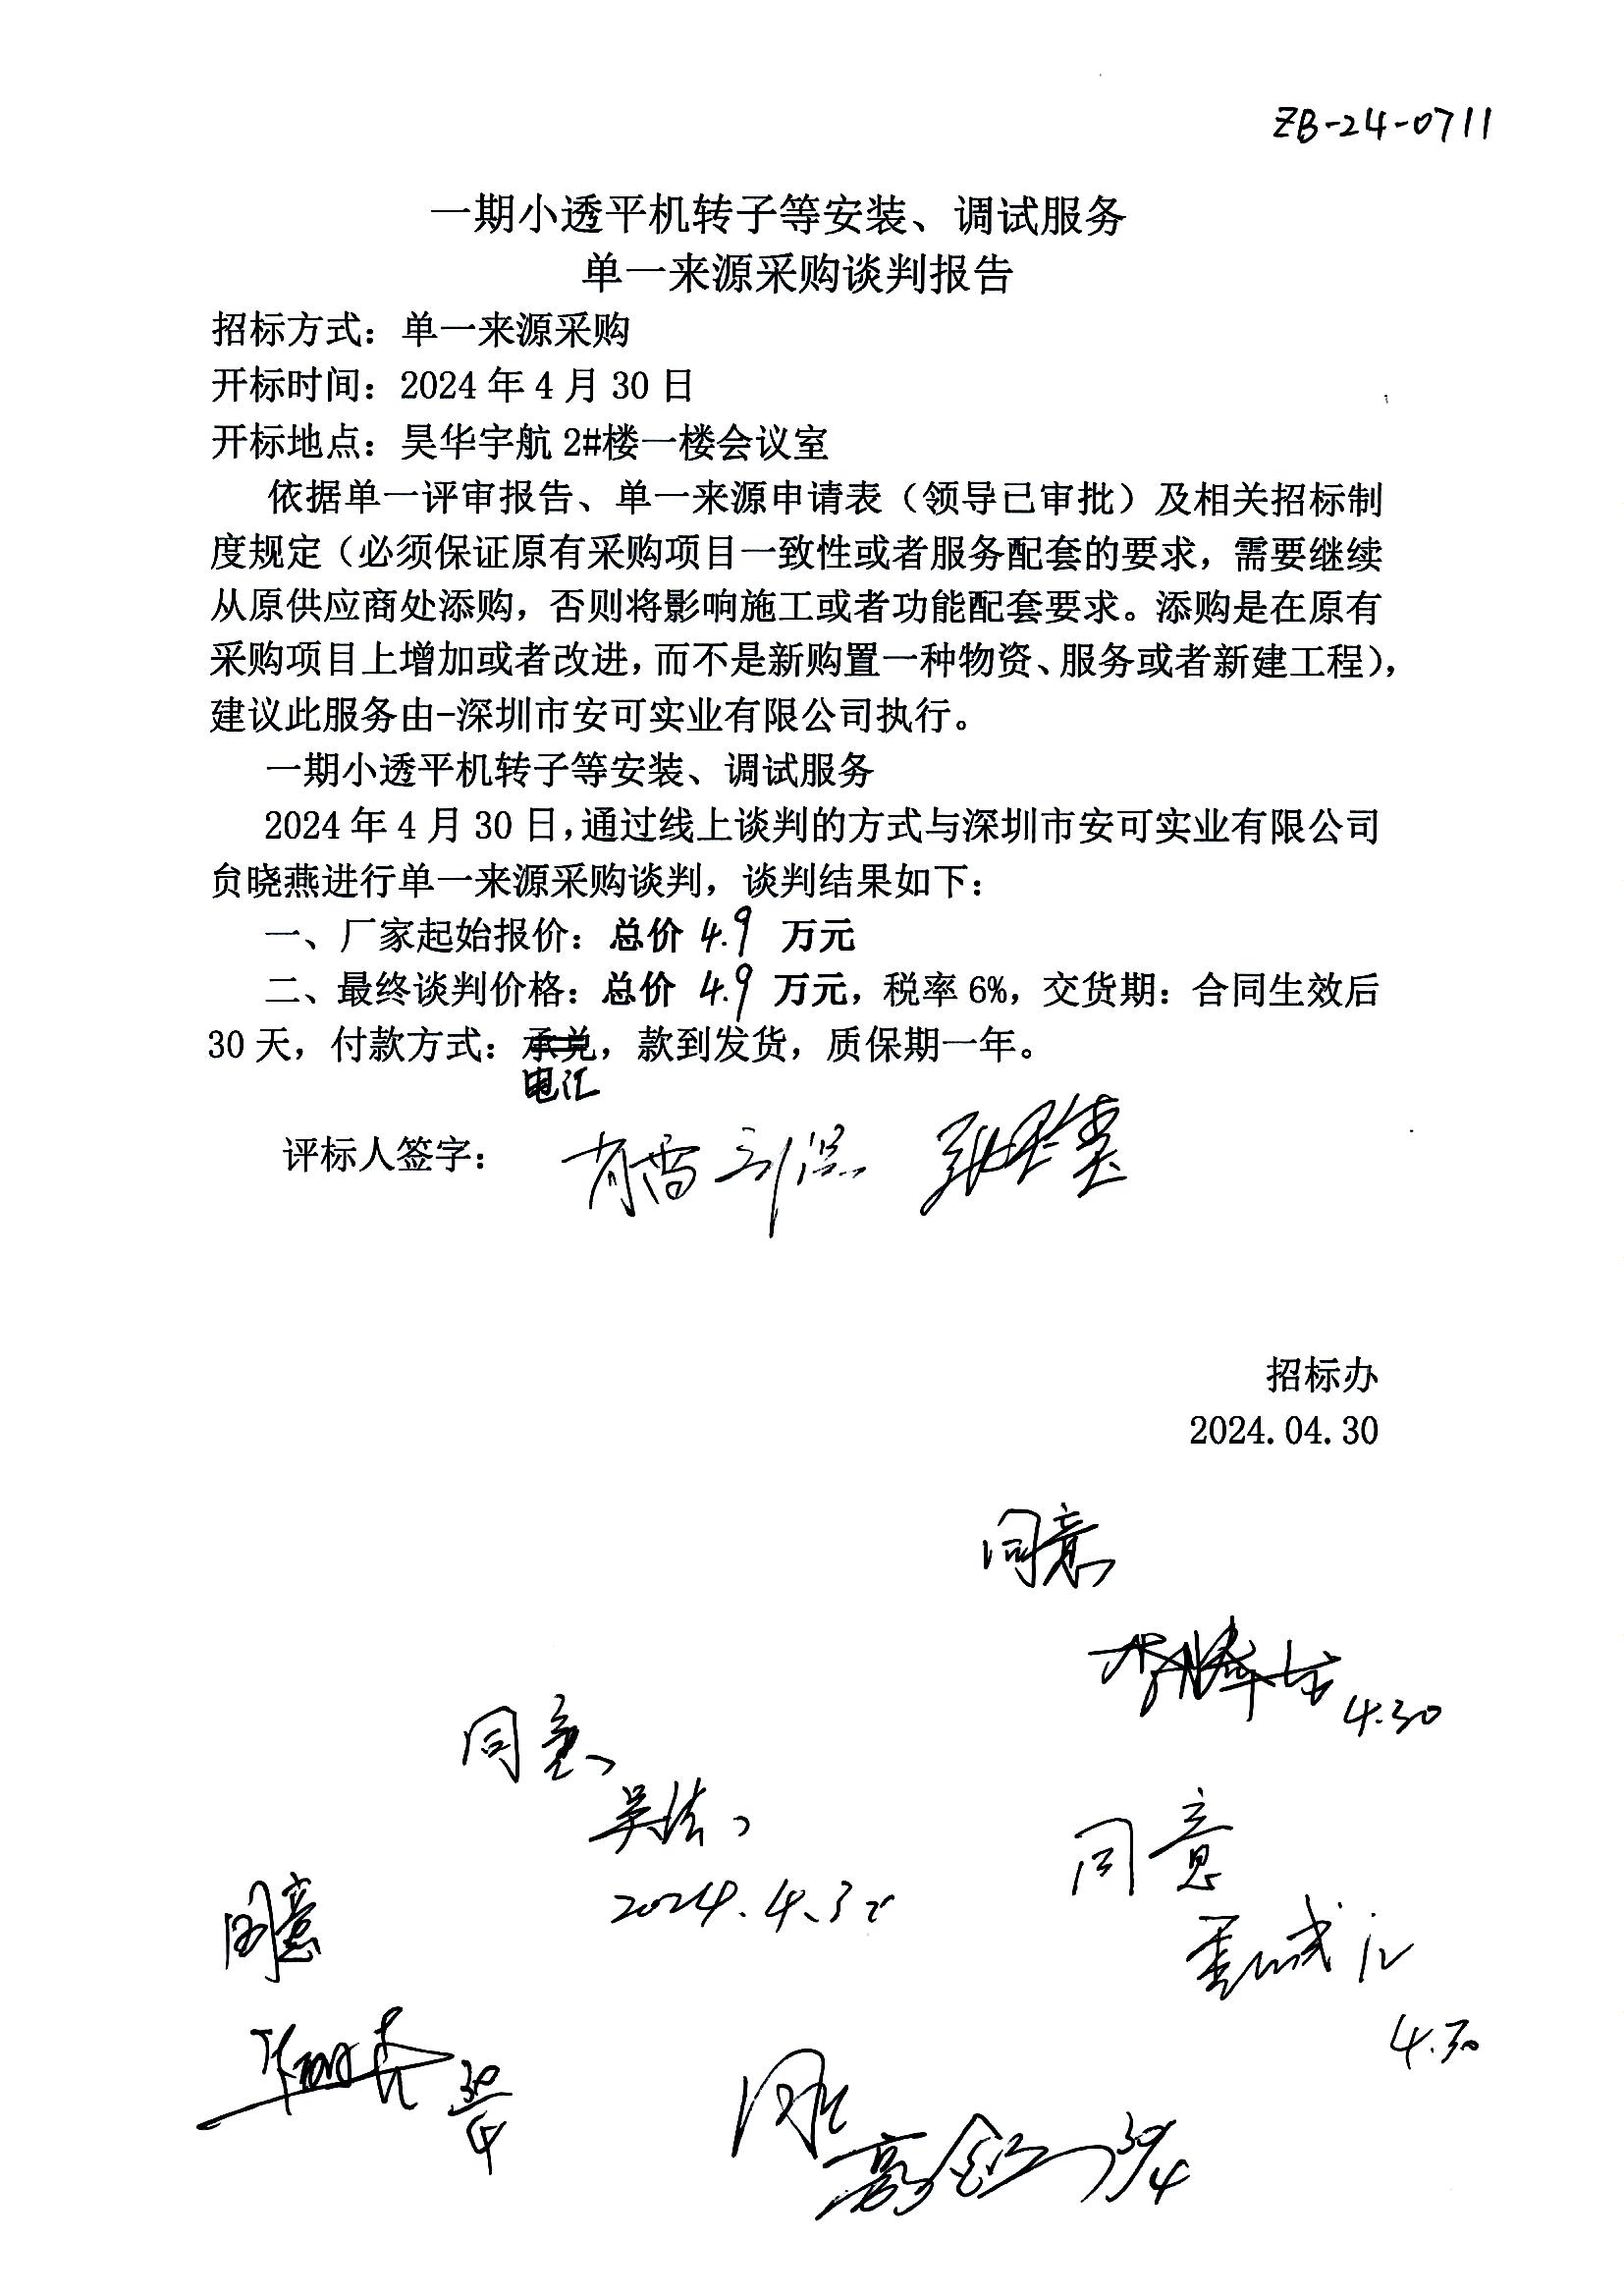 ZB-24-0711
一期小透平机转子等安装、调试服务
单一来源采购谈判报告
招标方式：单一来源采购
开标时间：2024年4月30日
开标地点：昊华宇航2#楼一楼会议室
依据单一评审报告、单一来源申请表（领导已审批）及相关招标制
度规定（必须保证原有采购项目一致性或者服务配套的要求，需要继续
从原供应商处添购，否则将影响施工或者功能配套要求。添购是在原有
采购项目上增加或者改进，而不是新购置一种物资、服务或者新建工程），
建议此服务由-深圳市安可实业有限公司执行。
一期小透平机转子等安装、调试服务
2024年4月30日，通过线上谈判的方式与深圳市安可实业有限公司
贠晓燕进行单一来源采购谈判，谈判结果如下：
一、厂家起始报价：总价 4.9 万元
二、最终谈判价格：总价 4.9 万元，税率6%，交货期：合同生效后
30天，付款方式：承兑，款到发货，质保期一年。
电汇
评标人签字：
招标办
2024.04.30
同意
4.30
同意
2024.4.30
同意
4.30
同意
30/4
30/4